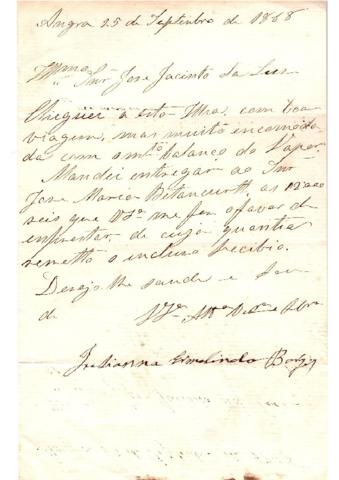 Angra 25 de Septembro de 1868
Illmo Snr José Jacinto da Luz
Cheguei a esta Ilha, com boa
viagem, mas muito encomoda
da com o mto balanço do Vapor.
Mandei entregar ao Snr
José Maria Betancurth, as
seis que VSa me fez o favor de
emprestar, de cuja quantia
remetto o incluso recibio.
Desejo lhe saude e sou
de VSa Atta
Julianna Ermelinda Borges